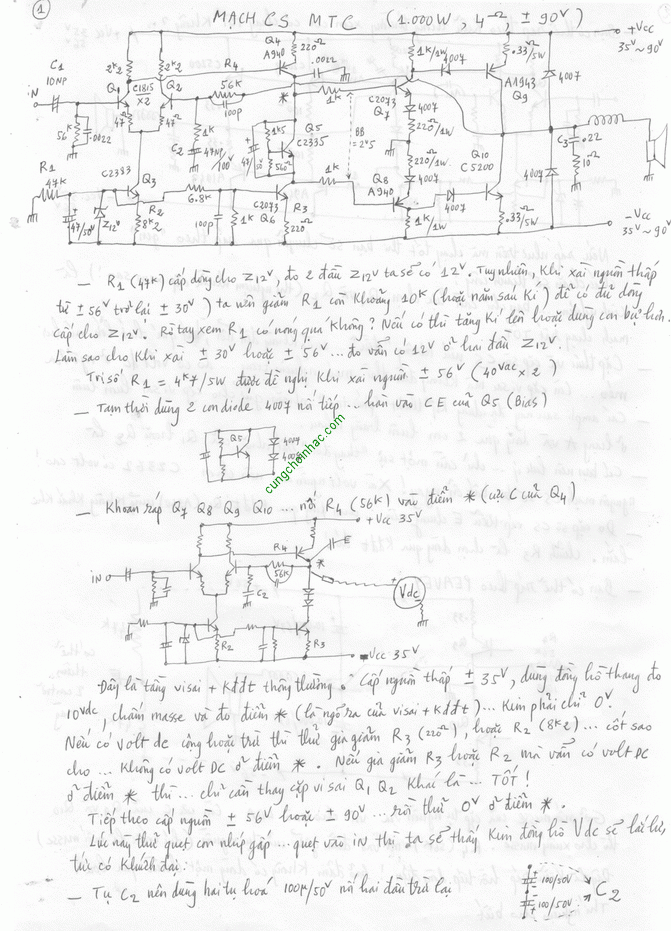 1
MẠCH CS MTC (1.000W, 4Ω, ± 90V)
+Vcc
35V ~ 90V
2K2
2K2
R4
Q4
A940
220Ω
.0022
1K/1W
4007
.33Ω/5W
A1943
Q9
4007
C1
10NP
iN
Q1
C1815
x2
Q2
56K
100p
*
1K
C2073
Q7
4007
220Ω/1W
56K
.0022
47Ω
47Ω
1K
C2
47NP/100V
1K5
47/50V
560Ω
Q5
C2335
BB
= 2V5
220Ω/1W
4007
Q10
C5200
C3
.22
10Ω
R1
47K
C2383
Q3
6.8K
1K
Q8
A940
4007
4007
47/50V
Z12V
R2
8K2
100p
1K
C2073
Q6
R3
220Ω
1K/1W
.33Ω/5W
-Vcc
35V ~ 90V
— R1 (47K) cấp dòng cho Z12V, đo 2 đầu Z12V ta sẽ có 12V. Tuy nhiên, Khi xài nguồn thấp
từ ± 56V trở lại ± 30V) ta nên giảm R1 còn khoảng 10K (hoặc năm sáu Kí) để có đủ dòng
cấp cho Z12V. Rờ tay xem R1 có nóng quá không? Nếu có thì tăng Kí lên hoặc dùng con bự hơn.
Làm sao cho Khi xài ± 30V hoặc ± 56V ... đo vẫn có 12V ở hai đầu Z12V.
Trị số R1 = 4K7/5W được đề nghị Khi xài nguồn ± 56V (40VAC x 2)
— Tạm thời dùng 2 con diode 4007 nối tiếp ... hàn vào CE của Q5 (Bias)
Q5
4007
4007
cungchoinhac.com
— Khoan ráp Q7 Q8 Q9 Q10 ... nối R4 (56K) vào điểm * (cực C của Q4)
+Vcc 35V
R4
E
*
iN
56K
C2
Vdc
R2
R3
-Vcc 35V
Đây là tầng visai + Kđđt thông thường. Cấp nguồn thấp ± 35V, dùng đồng hồ thang đo
10Vdc, chấm masse và đo điểm * (là ngõ ra của visai + Kđđt) ... Kim phải chỉ 0V.
Nếu có volt dc cộng hoặc trừ thì thử gia giảm R3 (220Ω), hoặc R2 (8K2) ... cốt sao
cho ... không có volt DC ở điểm *. Nếu gia giảm R3 hoặc R2 mà vẫn có volt DC
ở điểm * thì ... chỉ cần thay cặp visai Q1 Q2 Khác là ... TỐT!
Tiếp theo cấp nguồn ± 56V hoặc ± 90V ... rồi thử 0V ở điểm *.
Lúc này thử quẹt con nhíp gắp ... quẹt vào iN thì ta sẽ thấy Kim đồng hồ Vdc sẽ lắc lư,
tức có Khuếch đại.
— Tụ C2 nên dùng hai tụ hoá 100µ/50V nối hai đầu trừ lại
100/50V
100/50V
C2